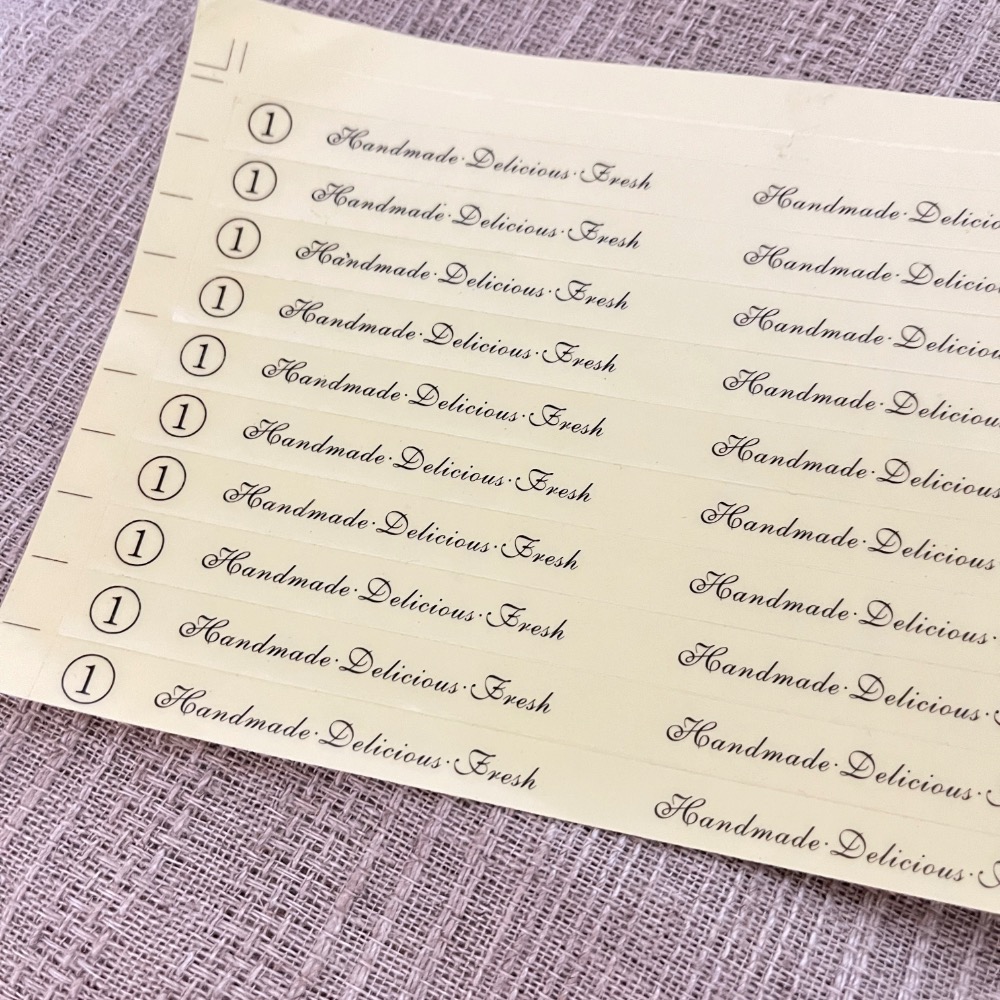 ① Handmade·Delicious·Fresh Handmade·Delicio
① Handmade·Delicious·Fresh Handmade·Delicio
① Handmade·Delicious·Fresh Handmade·Deliciou
① Handmade·Delicious·Fresh Handmade·Deliciou
① Handmade·Delicious·Fresh Handmade·Delicious
① Handmade·Delicious·Fresh Handmade·Delicious
① Handmade·Delicious·Fresh Handmade·Delicious·
① Handmade·Delicious·Fresh Handmade·Delicious·
① Handmade·Delicious·Fresh Handmade·Delicious·
① Handmade·Delicious·Fresh Handmade·Delicious·